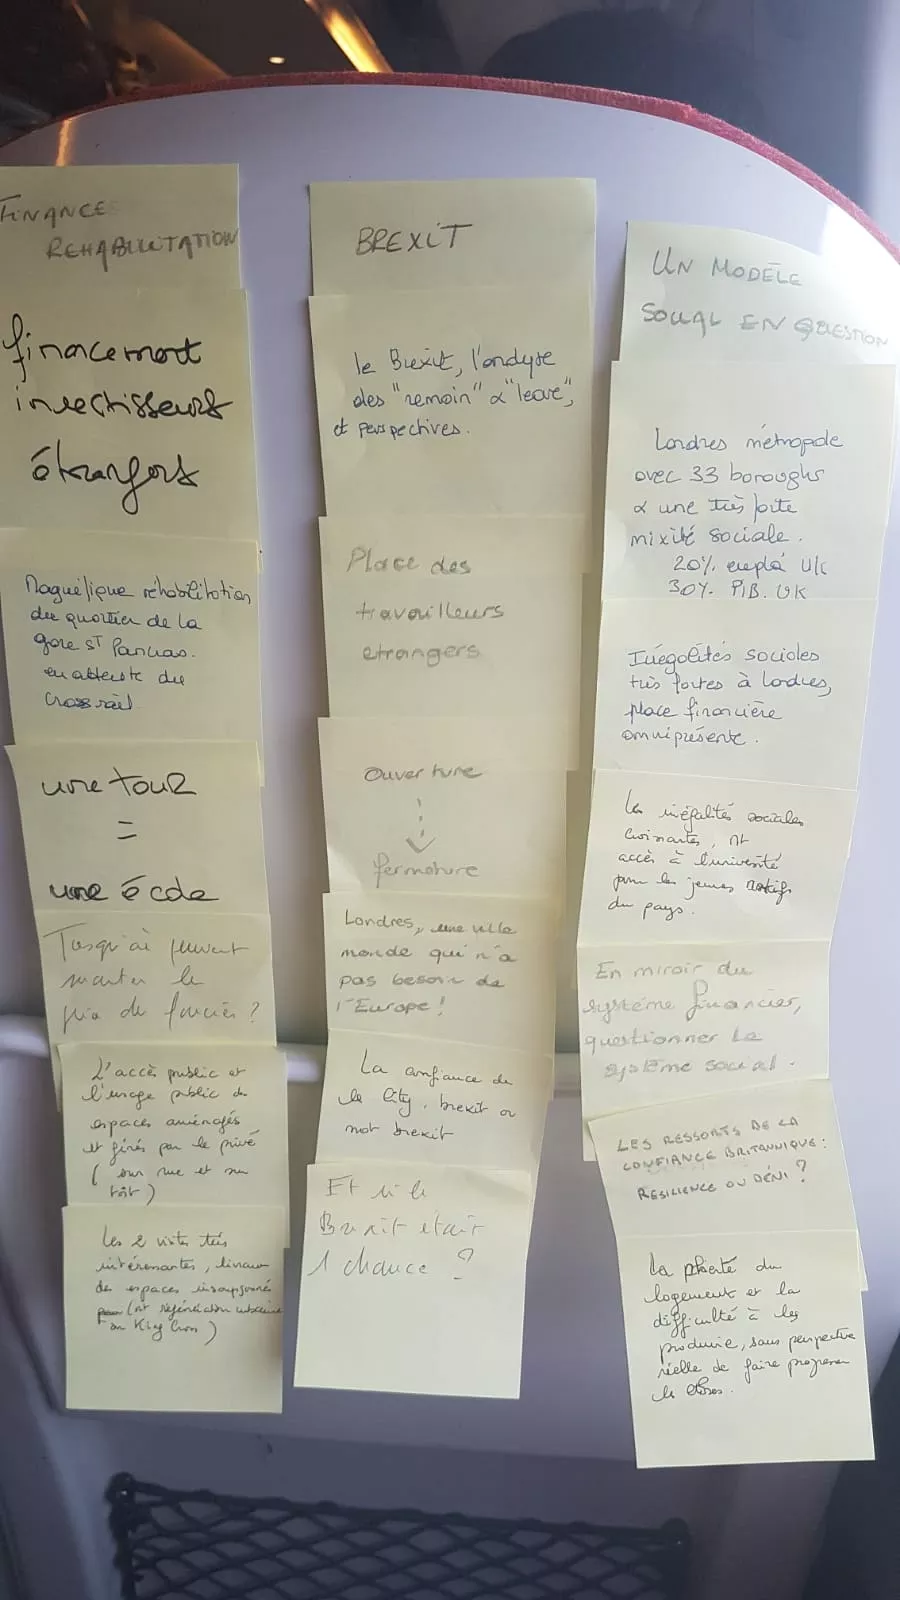 FINANCE
REHABILITATION
financement
investisseurs
étrangers
Magnifique réhabilitation
du quartier de la
gare St Pancras.
en attente du
Crossrail.
une tour
=
une école
Jusqu'où peuvent
monter le
prix du foncier ?
L'accès public et
l'usage public des
espaces aménagés
et gérés par le privé
( sur rue et sur
toit )
Les 2 visites très
intéressantes,
des espaces insoupçonnés
(nt régénération urbaine
King Cross )
BREXIT
le Brexit, l'analyse
des "remain" & "leave",
et perspectives.
Place des
travailleurs
etrangers
Ouverture
fermeture
Londres, une ville
monde qui n'a
pas besoin de
l'Europe !
La confiance de
la City, brexit or
not brexit
Et si le
Brexit était
1 chance ?
UN MODÈLE
SOCIAL EN QUESTION
Londres métropole
avec 33 boroughs
& une très forte
mixité sociale.
20% emploi UK
30% PIB. UK
Inégalités sociales
très fortes à Londres,
place financière
omniprésente.
Les inégalités sociales
croissantes, nt
accès à l'université
pour les jeunes natifs
du pays.
En miroir du
système financier,
questionner le
système social.
LES RESSORTS DE LA
CONFIANCE BRITANNIQUE :
RESILIENCE OU DÉNI ?
La cherté du
logement et la
difficulté à les
produire, sans perspective
réelle de faire progresser
les choses.